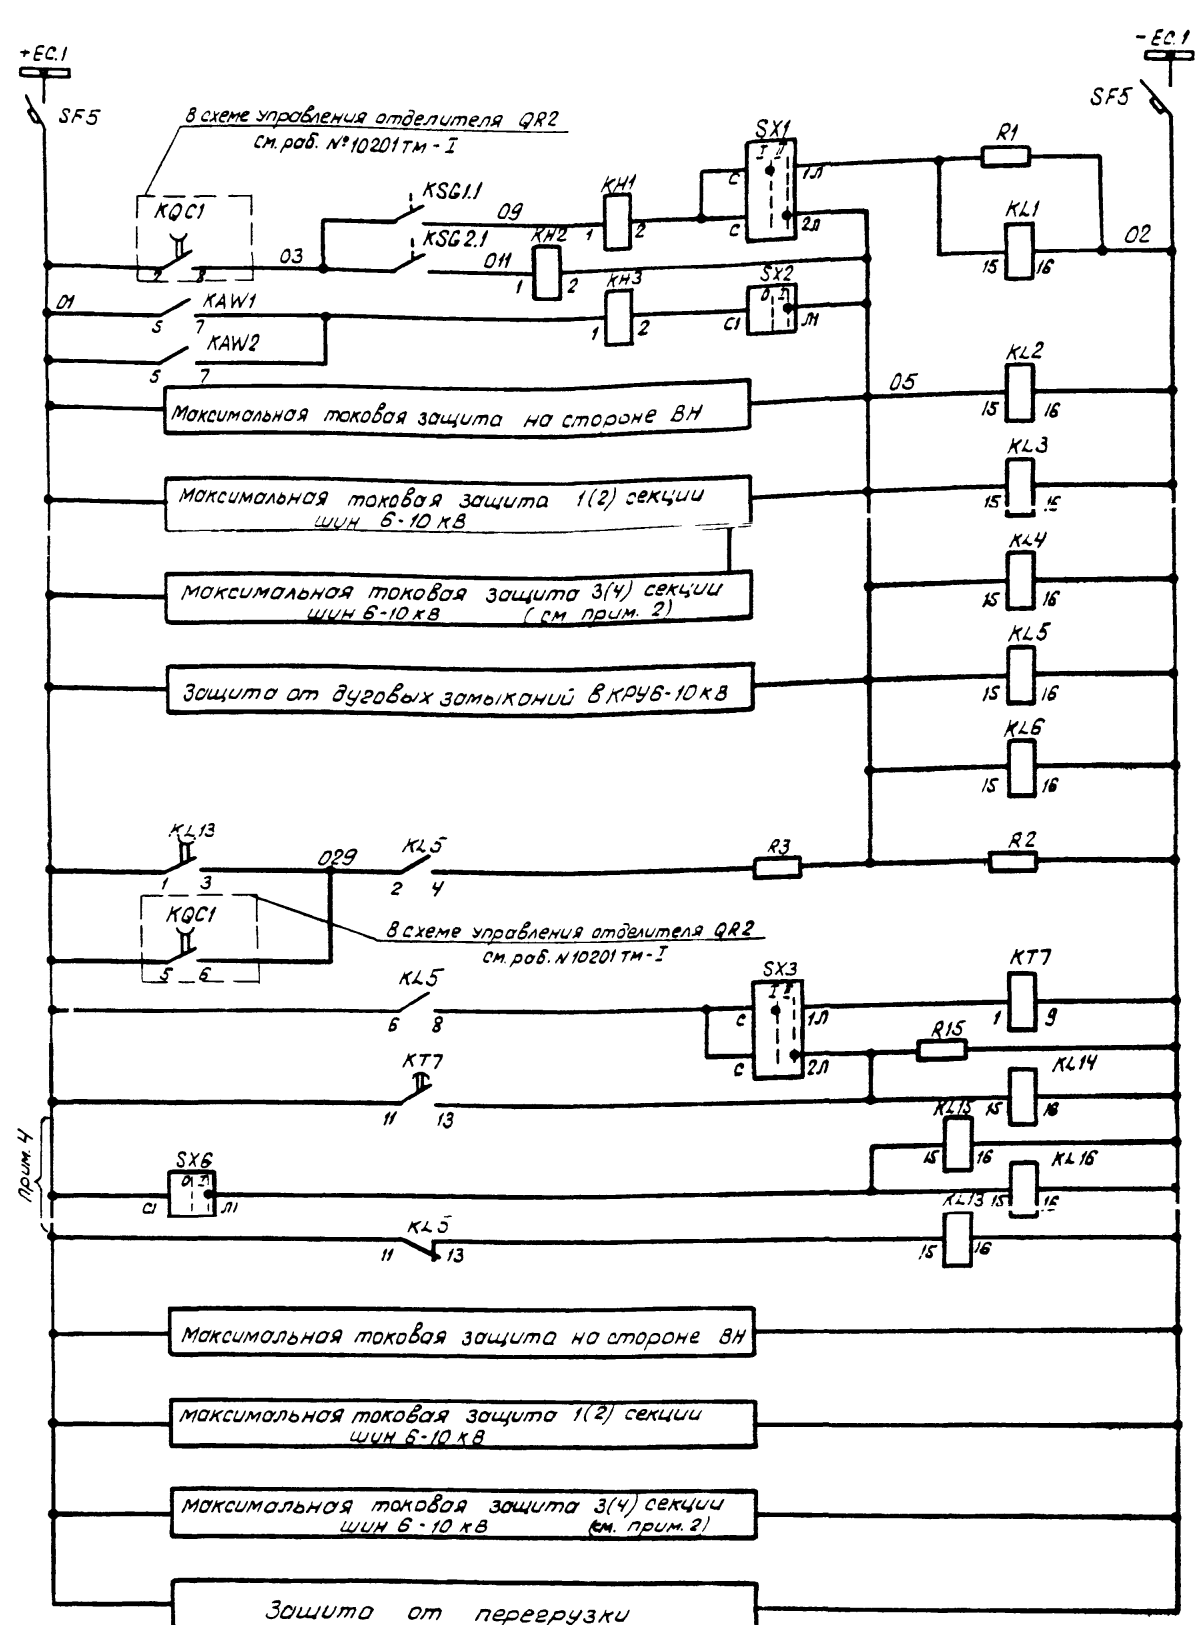 +EC.1
-EC.1
SF5
SF5
В схеме управления отделителя QR2
см. раб. №10201тм-I
KQC1
2 8
03
KSG1.1
09
KH1
1 2
C
C
SX1
I II
1Л
2Л
R1
KL1
15 16
02
KSG2.1
011
KH2
1 2
01
KAW1
5 7
KH3
1 2
SX2
0 I
C1 Л1
KAW2
5 7
Максимальная токовая защита на стороне ВН
05
KL2
15 16
Максимальная токовая защита 1(2) секции
шин 6-10 кВ
KL3
15 16
Максимальная токовая защита 3(4) секции
шин 6-10 кВ (см прим. 2)
KL4
15 16
Защита от дуговых замыканий в КРУ6-10кВ
KL5
15 16
KL6
15 16
KL13
1 3
029
KL5
2 4
R3
R2
KQC1
5 6
В схеме управления отделителя QR2
см. раб. N10201тм-I
KL5
6 8
SX3
I II
C
C
1Л
2Л
KT7
1 9
R15
KT7
11 13
KL14
15 16
Прим. 4
KL15
15 16
SX6
0 I
C1 Л1
KL16
15 16
KL5
11 13
KL13
15 16
Максимальная токовая защита на стороне ВН
Максимальная токовая защита 1(2) секции
шин 6-10 кВ
Максимальная токовая защита 3(4) секции
шин 6-10 кВ (см. прим. 2)
Защита от перегрузки